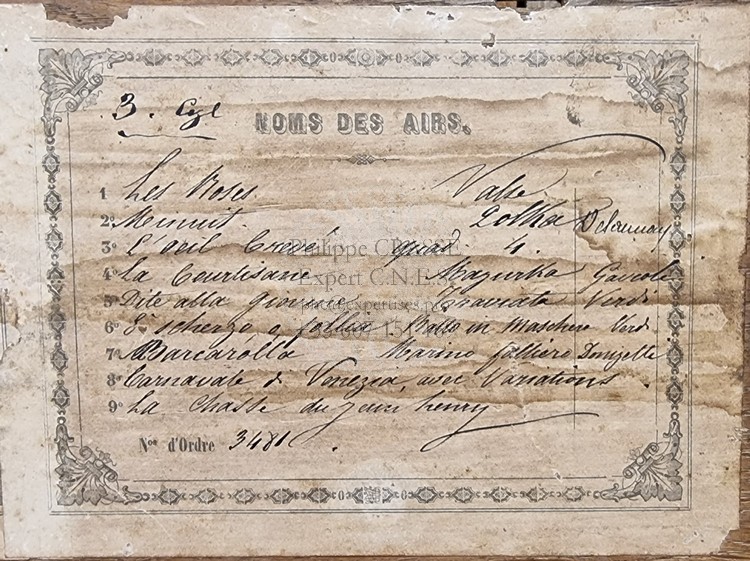 3. Cyl
NOMS DES AIRS.
1 Les Roses Valse
2º Menuit Polka Delaunay
3º L'oeil Crevé quad 4.
4º La Courtisane Mazurka
5º Dite alla Giovine Traviata Verdi
6º E scherzo o follia Ballo in Maschera Verdi
7 Barcarolla Marino Falliero Donizette
8º Carnavale di Venezia, avec Variations
9º La Chasse du jeun henry
Nos d'Ordre 3481
Philippe CR
Expert C.N.E.S.